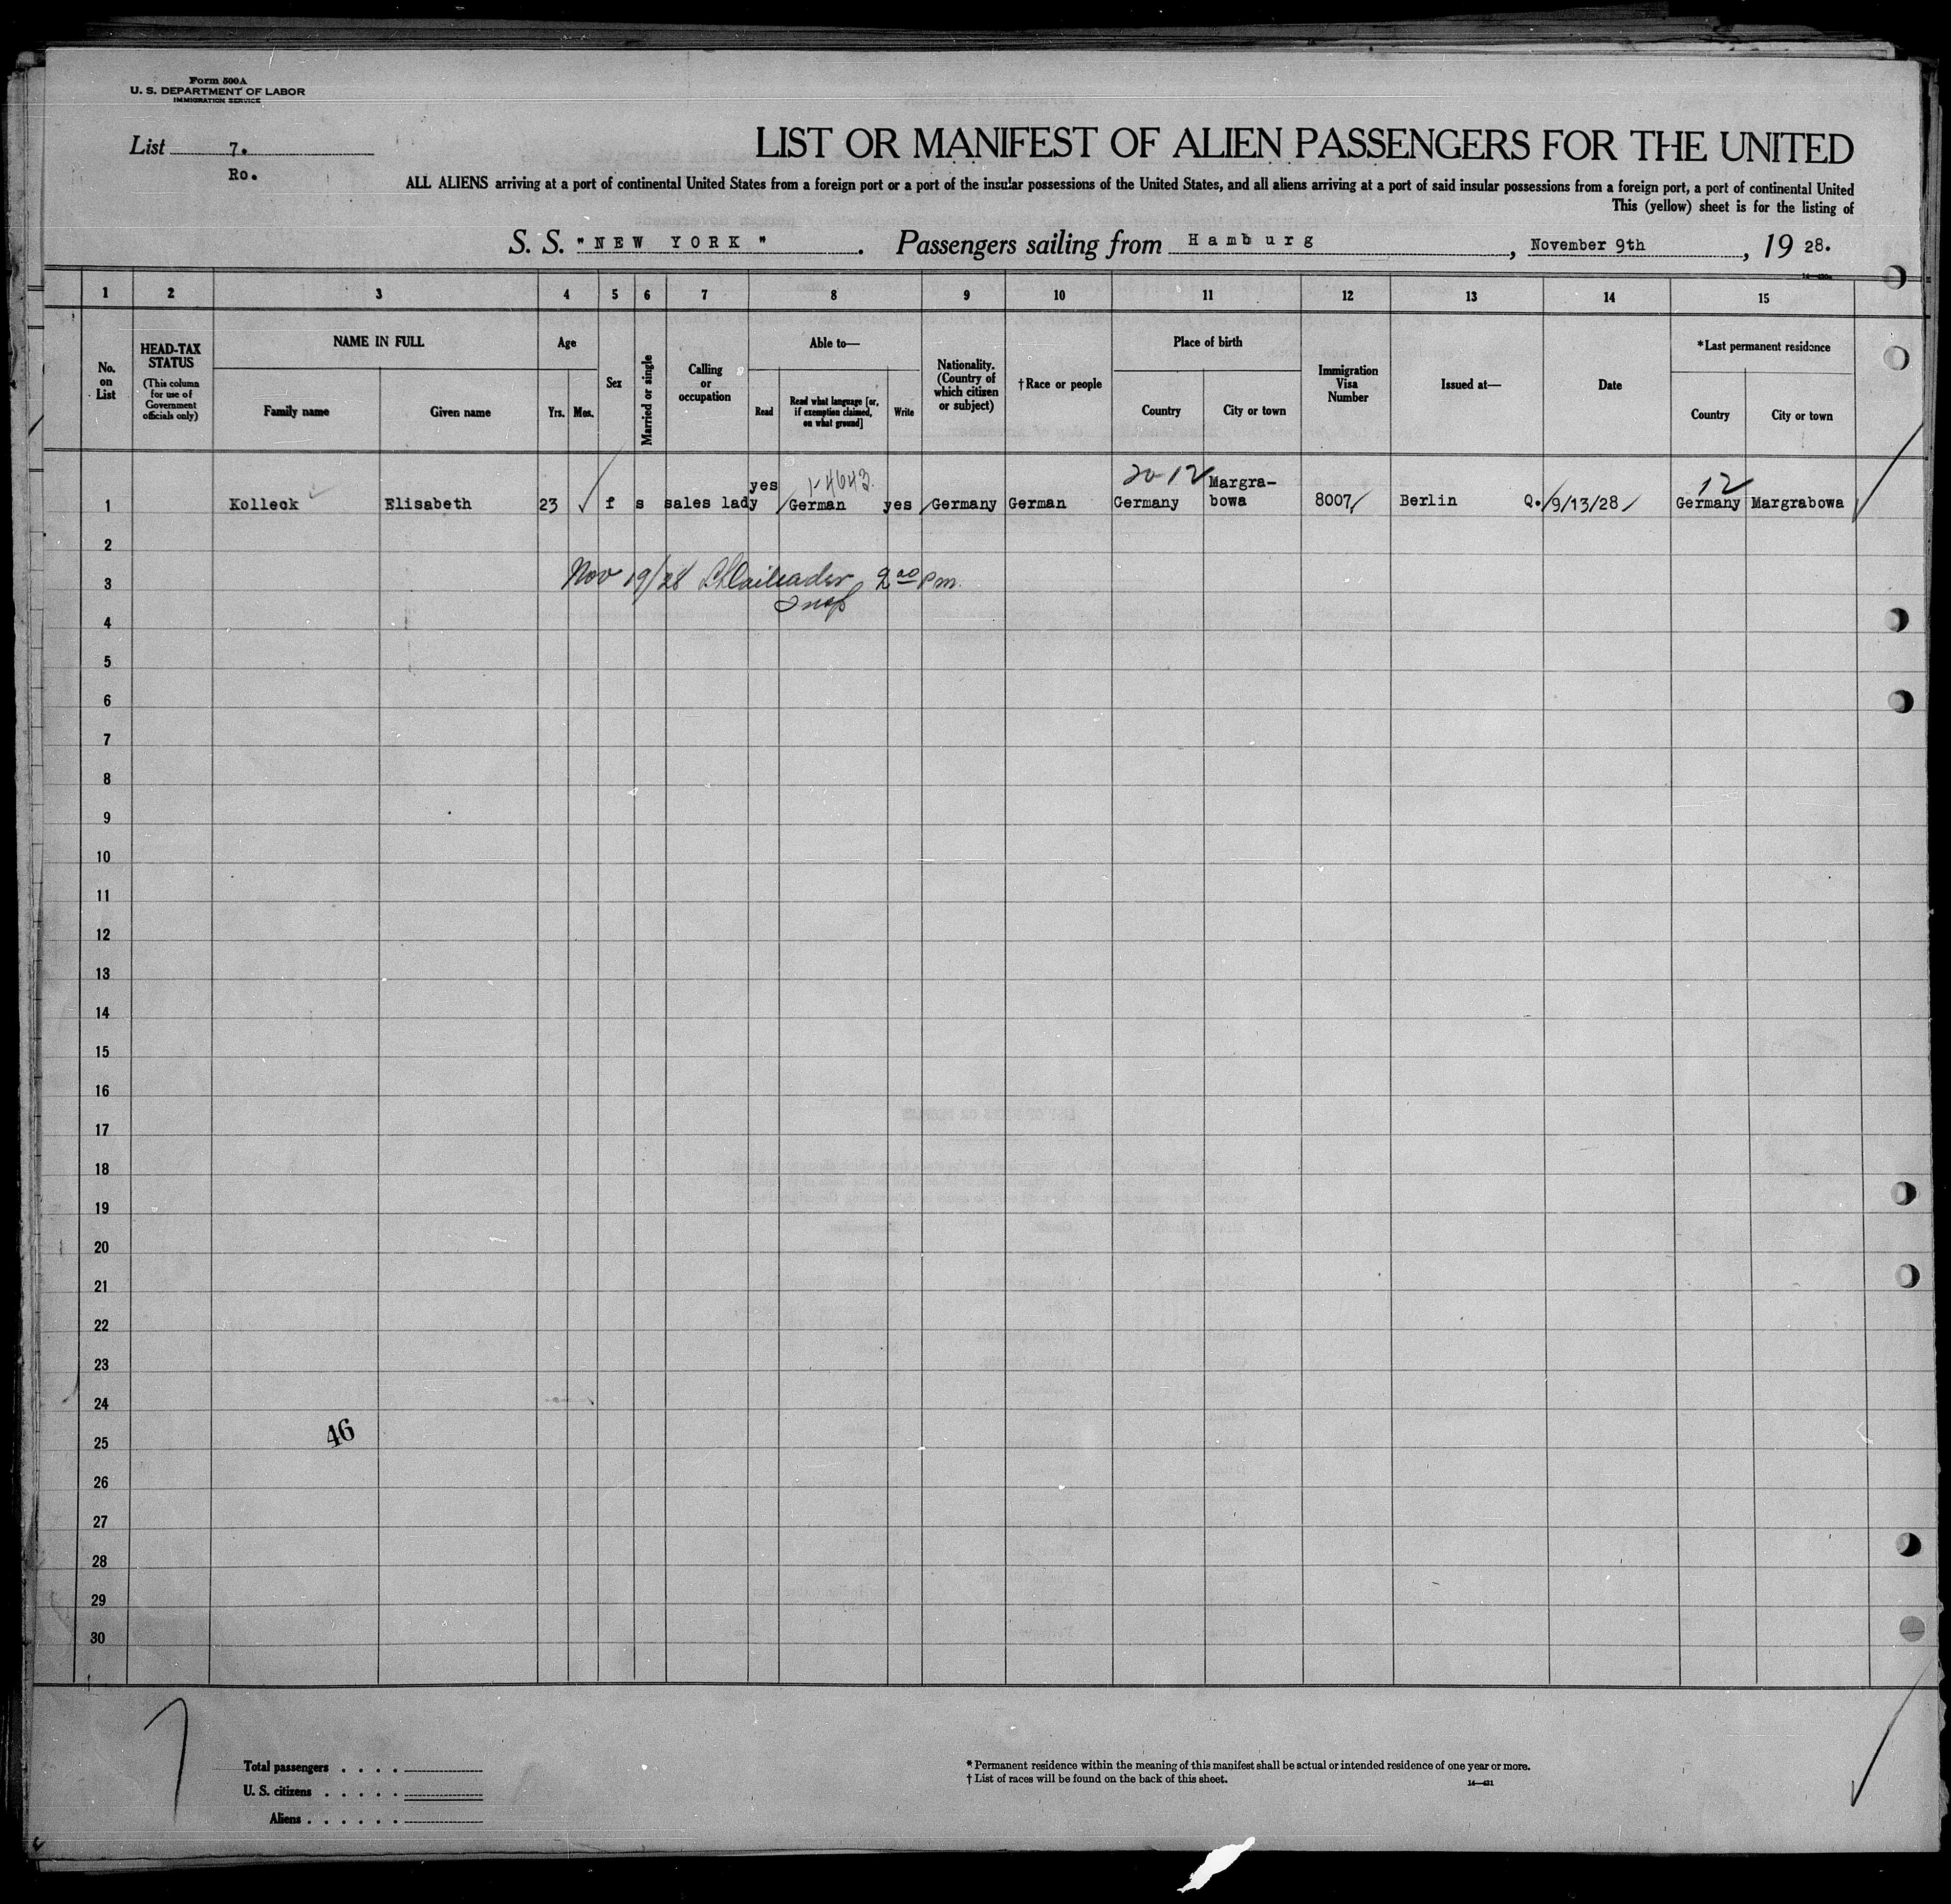 Form 500A
U. S. DEPARTMENT OF LABOR
IMMIGRATION SERVICE
List 7.
Ro.
LIST OR MANIFEST OF ALIEN PASSENGERS FOR THE UNITED
ALL ALIENS arriving at a port of continental United States from a foreign port or a port of the insular possessions of the United States, and all aliens arriving at a port of said insular possessions from a foreign port, a port of continental United
This (yellow) sheet is for the listing of
S. S. "NEW YORK". Passengers sailing from Hamburg, November 9th, 19 28.
1 2 3 4 5 6 7 8 9 10 11 12 13 14 15
No. on List
HEAD-TAX STATUS
(This column for use of Government officials only)
NAME IN FULL
Family name Given name
Age
Yrs. Mos.
Sex
Married or single
Calling or occupation
Able to—
Read
Read what language [or, if exemption claimed, on what ground]
Write
Nationality. (Country of which citizen or subject)
†Race or people
Place of birth
Country City or town
Immigration Visa Number
Issued at—
Date
*Last permanent residence
Country City or town
1-4643 20-12 12
1 Kolleck Elisabeth 23 f s sales lady yes German yes Germany German Germany Margra-
bowa 8007 Berlin Q. 9/13/28 Germany Margrabowa
2
Nov 19/28 2 00 pm.
3
Insp
4
5
6
7
8
9
10
11
12
13
14
15
16
17
18
19
20
21
22
23
24
46
25
26
27
28
29
30
Total passengers . . . .
U. S. citizens . . . . .
Aliens . . . . . .
* Permanent residence within the meaning of this manifest shall be actual or intended residence of one year or more.
† List of races will be found on the back of this sheet.
14—431